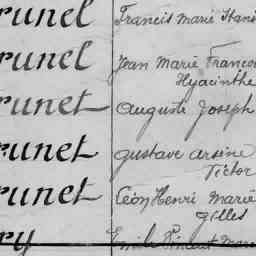 runel Francis Marie Stani
runel Jean Marie Francoi
Hyacinthe
runet Auguste Joseph
runet Gustave Arsène
Victor
runet Léon Henri Marie
Gilles
ry Emile Vincent Marie